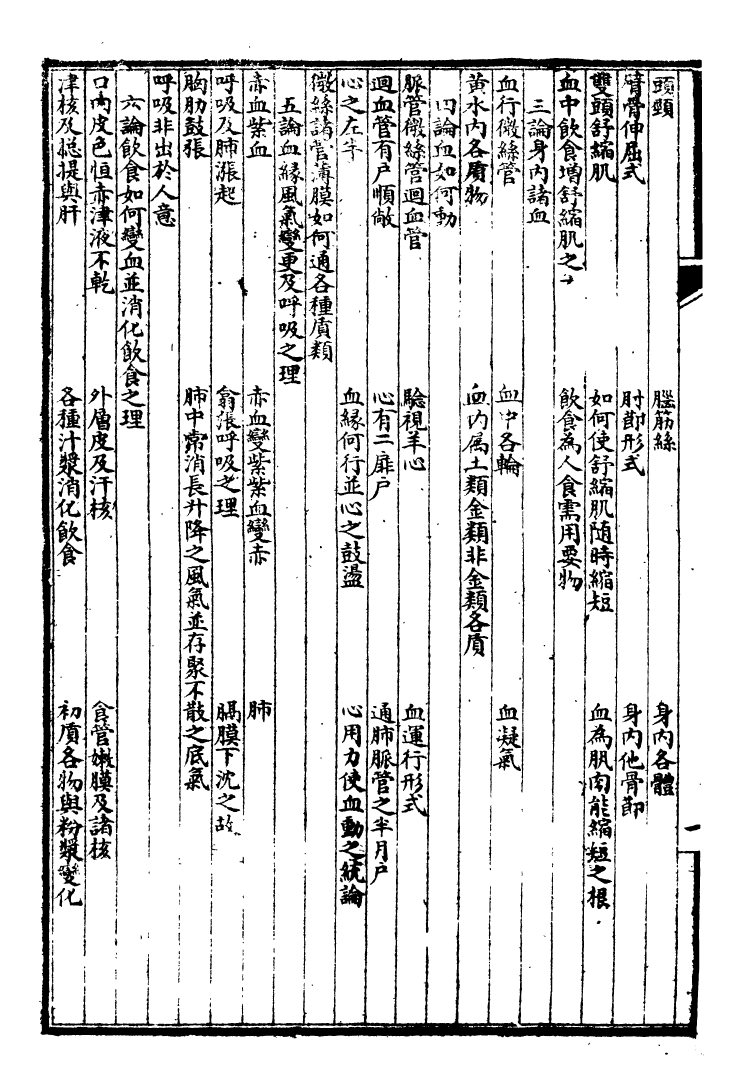 頭頸　腦筋絲　身內各體
臂骨伸屈式　肘節形式　身內他骨節
雙頭舒縮肌　如何使舒縮肌隨時縮短　血為肌肉能縮短之根
血中飲食增舒縮肌之　飲食為人食需用要物
三論身內諸血
血行微絲管　血中各輪　血凝氣
黃水內各質物　血內屬土類金類非金類各質
四論血如何動
脈管微絲管迴血管　驗視羊心　血運行形式
迴血管有户順敞　心有二扉户　通肺脈管之半月户
心之左半　血緣何行並心之鼓盪　心用力使血動之統論
微絲諸管薄膜如何通各種質類
五論血緣風氣變更及呼吸之理
赤血紫血　赤血變紫紫血變赤　肺
呼吸及肺漲起　翕張呼吸之理　膈膜下沈之故
胸肋鼓張　肺中常消長升降之風氣並存聚不散之底氣
呼吸非出於人意
六論飲食如何變血並消化飲食之理
口內皮色恒赤津液不乾　外層皮及汗核　食管嫩膜及諸核
津核及總提與肝　各種汁漿消化飲食　初質各物與粉漿變化
一